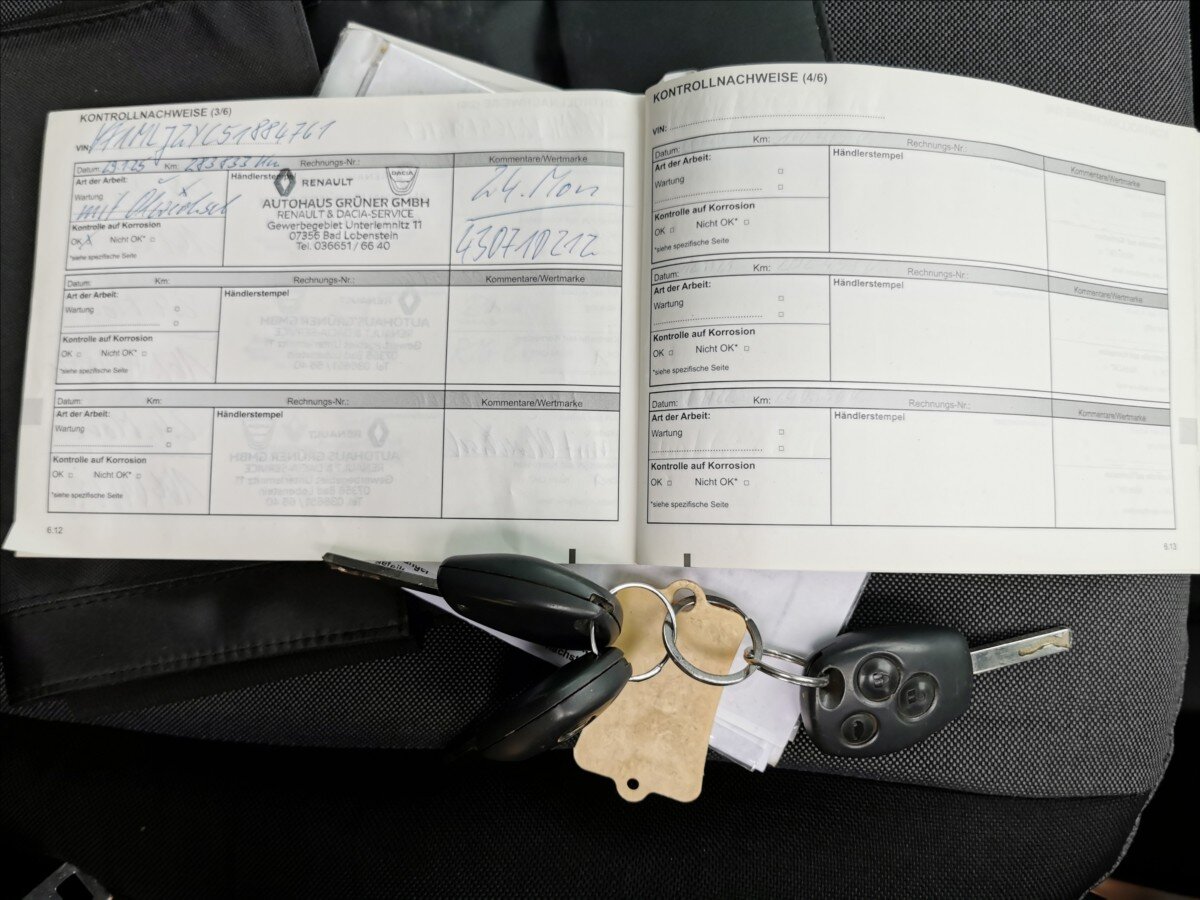 KONTROLLNACHWEISE (3/6)
VIN:
Datum: Km: Rechnungs-Nr.:
Kommentare/Wertmarke
Art der Arbeit:
Wartung
mit Ölwechsel
Kontrolle auf Korrosion
OK X Nicht OK*
*siehe spezifische Seite
Händlerstempel
RENAULT DACIA
AUTOHAUS GRÜNER GMBH
RENAULT & DACIA-SERVICE
Gewerbegebiet Unterlemnitz 11
07356 Bad Lobenstein
Tel. 036651 / 66 40
24. Mon
430710212
Datum: Km: Rechnungs-Nr.:
Kommentare/Wertmarke
Art der Arbeit:
Wartung
Kontrolle auf Korrosion
OK Nicht OK*
*siehe spezifische Seite
Händlerstempel
Datum: Km: Rechnungs-Nr.:
Kommentare/Wertmarke
Art der Arbeit:
Wartung
Kontrolle auf Korrosion
OK Nicht OK*
*siehe spezifische Seite
Händlerstempel
6.12
KONTROLLNACHWEISE (4/6)
VIN:
Datum: Km: Rechnungs-Nr.:
Kommentare/Wertmarke
Art der Arbeit:
Wartung
Kontrolle auf Korrosion
OK Nicht OK*
*siehe spezifische Seite
Händlerstempel
Datum: Km: Rechnungs-Nr.:
Kommentare/Wertmarke
Art der Arbeit:
Wartung
Kontrolle auf Korrosion
OK Nicht OK*
*siehe spezifische Seite
Händlerstempel
Datum: Km: Rechnungs-Nr.:
Kommentare/Wertmarke
Art der Arbeit:
Wartung
Kontrolle auf Korrosion
OK Nicht OK*
*siehe spezifische Seite
Händlerstempel
6.13